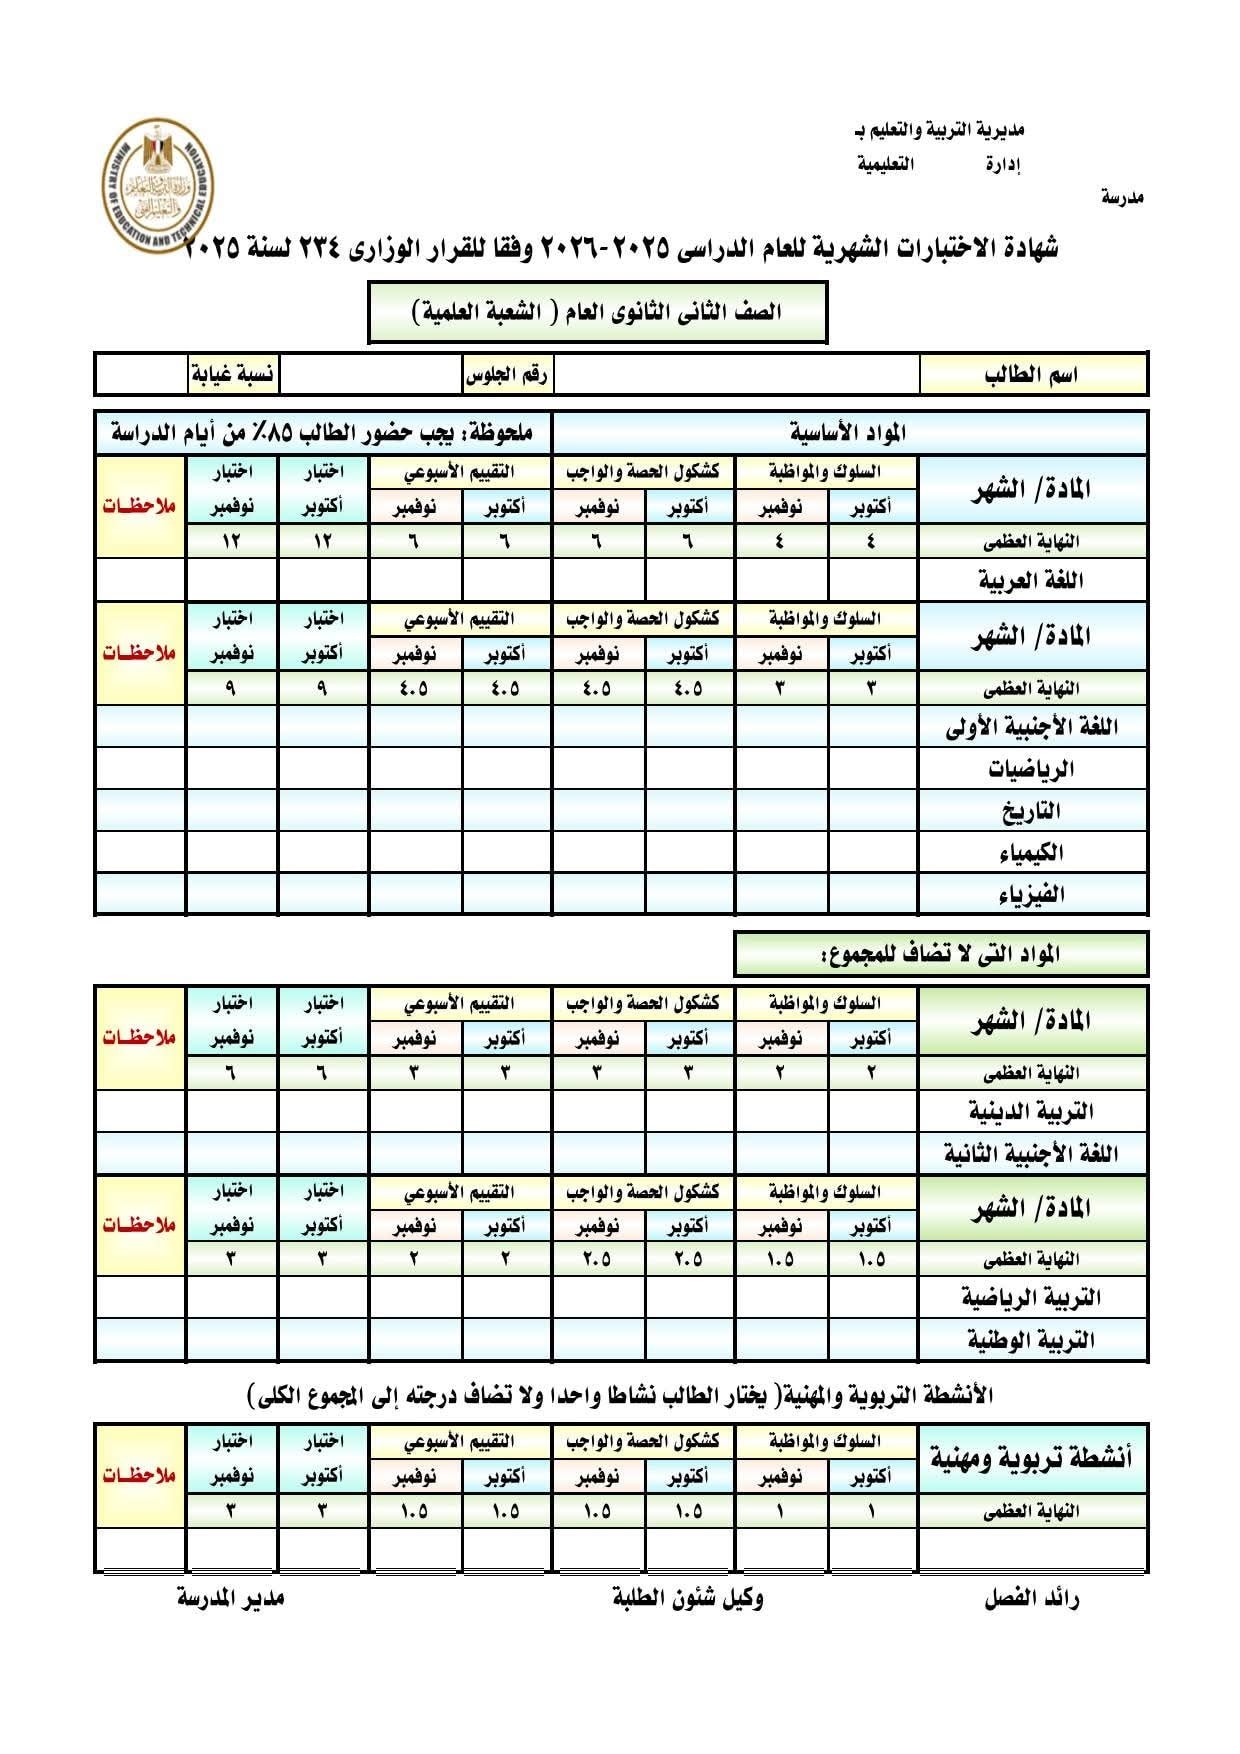 مديرية التربية والتعليم بـ
إدارة التعليمية
مدرسة
MINISTRY OF EDUCATION AND TECHNICAL EDUCATION
وزارة التربية والتعليم
والتعليم الفنى
شهادة الاختبارات الشهرية للعام الدراسى ٢٠٢٥-٢٠٢٦ وفقا للقرار الوزارى ٢٣٤ لسنة ٢٠٢٥
الصف الثانى الثانوى العام ( الشعبة العلمية)
اسم الطالب رقم الجلوس نسبة غيابة
المواد الأساسية ملحوظة: يجب حضور الطالب ٨٥٪ من أيام الدراسة
المادة/ الشهر السلوك والمواظبة كشكول الحصة والواجب التقييم الأسبوعي اختبار أكتوبر اختبار نوفمبر ملاحظـات
أكتوبر نوفمبر أكتوبر نوفمبر أكتوبر نوفمبر
النهاية العظمى ٤ ٤ ٦ ٦ ٦ ٦ ١٢ ١٢
اللغة العربية
المادة/ الشهر السلوك والمواظبة كشكول الحصة والواجب التقييم الأسبوعي اختبار أكتوبر اختبار نوفمبر ملاحظـات
أكتوبر نوفمبر أكتوبر نوفمبر أكتوبر نوفمبر
النهاية العظمى ٣ ٣ ٤.٥ ٤.٥ ٤.٥ ٤.٥ ٩ ٩
اللغة الأجنبية الأولى
الرياضيات
التاريخ
الكيمياء
الفيزياء
المواد التى لا تضاف للمجموع:
المادة/ الشهر السلوك والمواظبة كشكول الحصة والواجب التقييم الأسبوعي اختبار أكتوبر اختبار نوفمبر ملاحظـات
أكتوبر نوفمبر أكتوبر نوفمبر أكتوبر نوفمبر
النهاية العظمى ٢ ٢ ٣ ٣ ٣ ٣ ٦ ٦
التربية الدينية
اللغة الأجنبية الثانية
المادة/ الشهر السلوك والمواظبة كشكول الحصة والواجب التقييم الأسبوعي اختبار أكتوبر اختبار نوفمبر ملاحظـات
أكتوبر نوفمبر أكتوبر نوفمبر أكتوبر نوفمبر
النهاية العظمى ١.٥ ١.٥ ٢.٥ ٢.٥ ٢ ٢ ٣ ٣
التربية الرياضية
التربية الوطنية
الأنشطة التربوية والمهنية( يختار الطالب نشاطا واحدا ولا تضاف درجته إلى المجموع الكلى)
أنشطة تربوية ومهنية السلوك والمواظبة كشكول الحصة والواجب التقييم الأسبوعي اختبار أكتوبر اختبار نوفمبر ملاحظـات
أكتوبر نوفمبر أكتوبر نوفمبر أكتوبر نوفمبر
النهاية العظمى ١ ١ ١.٥ ١.٥ ١.٥ ١.٥ ٣ ٣
رائد الفصل وكيل شئون الطلبة مدير المدرسة